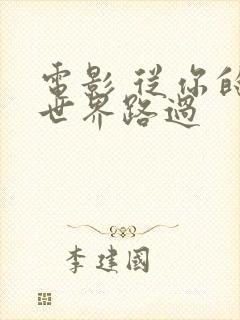 電影 從你的
世界路過
李建國